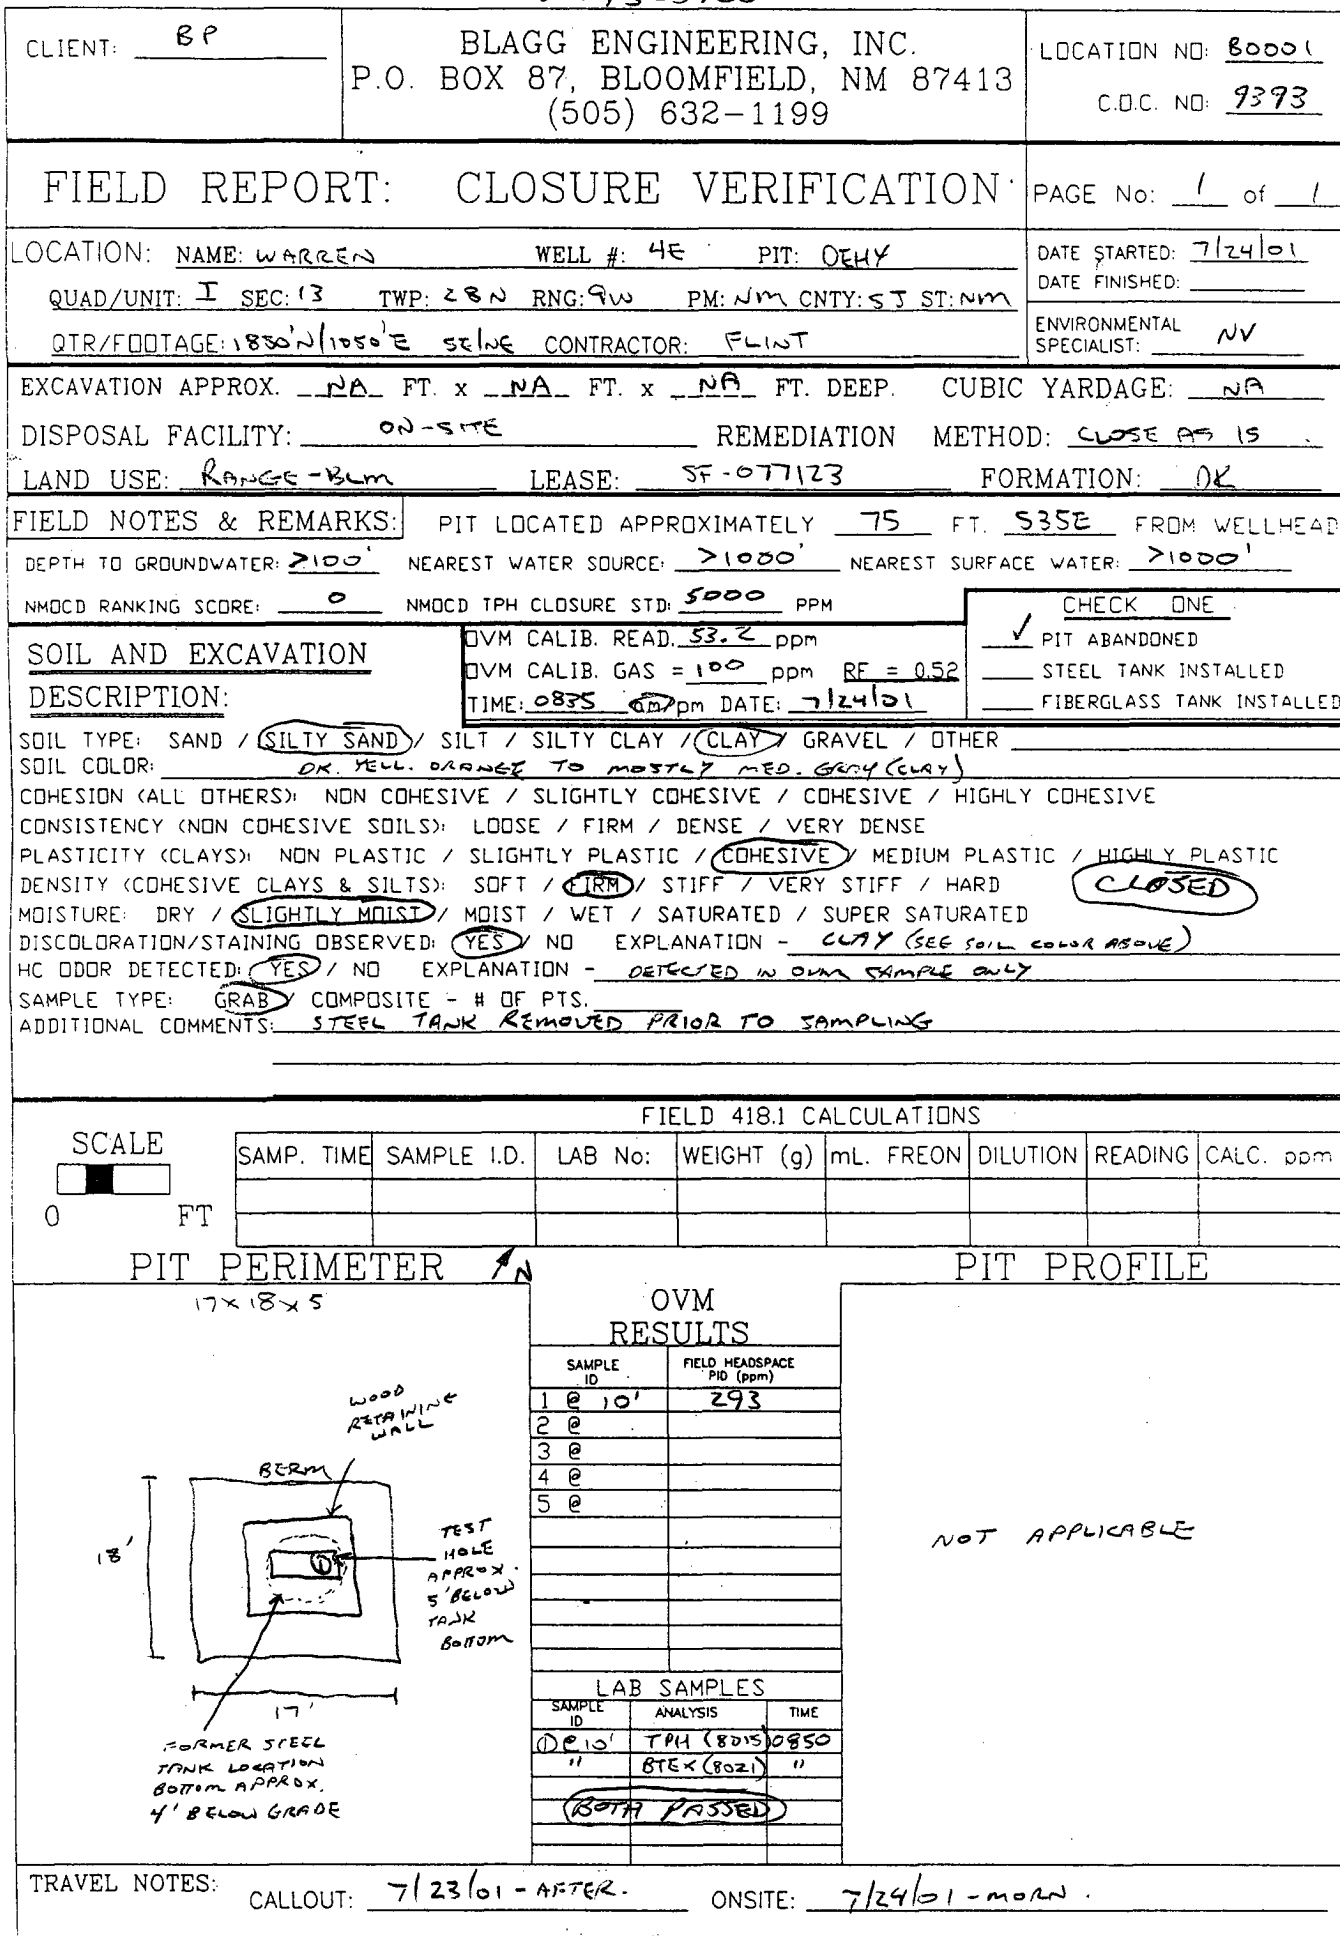 CLIENT: BP
BLAGG ENGINEERING, INC.
P.O. BOX 87, BLOOMFIELD, NM 87413
(505) 632-1199
LOCATION NO: B0001
C.O.C. NO: 9393
FIELD REPORT: CLOSURE VERIFICATION
PAGE No: 1 of 1
LOCATION: NAME: WARREN WELL #: 4E PIT: DEHY
QUAD/UNIT: I SEC: 13 TWP: 28N RNG: 9W PM: NM CNTY: SJ ST: NM
QTR/FOOTAGE: 1850'N/1050'E SE/NE CONTRACTOR: FLINT
DATE STARTED: 7/24/01
DATE FINISHED:
ENVIRONMENTAL
SPECIALIST: NV
EXCAVATION APPROX. NA FT. x NA FT. x NA FT. DEEP. CUBIC YARDAGE: NA
DISPOSAL FACILITY: ON-SITE REMEDIATION METHOD: CLOSE AS IS
LAND USE: RANGE-BLM LEASE: SF-077123 FORMATION: DK
FIELD NOTES & REMARKS: PIT LOCATED APPROXIMATELY 75 FT. S35E FROM WELLHEAD
DEPTH TO GROUNDWATER: >100' NEAREST WATER SOURCE: >1000' NEAREST SURFACE WATER: >1000'
NMOCD RANKING SCORE: 0 NMOCD TPH CLOSURE STD: 5000 PPM
CHECK ONE
✓ PIT ABANDONED
STEEL TANK INSTALLED
FIBERGLASS TANK INSTALLED
SOIL AND EXCAVATION
DESCRIPTION:
OVM CALIB. READ. 53.2 ppm
OVM CALIB. GAS = 100 ppm RF = 0.52
TIME: 0835 am/pm DATE: 7/24/01
SOIL TYPE: SAND / SILTY SAND / SILT / SILTY CLAY / CLAY / GRAVEL / OTHER
SOIL COLOR: DK. YELL. ORANGE TO MOSTLY MED. GRAY (CLAY)
COHESION (ALL OTHERS): NON COHESIVE / SLIGHTLY COHESIVE / COHESIVE / HIGHLY COHESIVE
CONSISTENCY (NON COHESIVE SOILS): LOOSE / FIRM / DENSE / VERY DENSE
PLASTICITY (CLAYS): NON PLASTIC / SLIGHTLY PLASTIC / COHESIVE / MEDIUM PLASTIC / HIGHLY PLASTIC
DENSITY (COHESIVE CLAYS & SILTS): SOFT / FIRM / STIFF / VERY STIFF / HARD CLOSED
MOISTURE: DRY / SLIGHTLY MOIST / MOIST / WET / SATURATED / SUPER SATURATED
DISCOLORATION/STAINING OBSERVED: YES / NO EXPLANATION - CLAY (SEE SOIL COLOR ABOVE)
HC ODOR DETECTED: YES / NO EXPLANATION - DETECTED IN OVM SAMPLE ONLY
SAMPLE TYPE: GRAB / COMPOSITE - # OF PTS.
ADDITIONAL COMMENTS: STEEL TANK REMOVED PRIOR TO SAMPLING
FIELD 418.1 CALCULATIONS
SCALE
0 FT
SAMP. TIME SAMPLE I.D. LAB No: WEIGHT (g) mL. FREON DILUTION READING CALC. ppm
PIT PERIMETER N
17 x 18 x 5
WOOD
RETAINING
WALL
BERM
18'
TEST
HOLE
APPROX.
5' BELOW
TANK
BOTTOM
1
17'
FORMER STEEL
TANK LOCATION
BOTTOM APPROX.
4' BELOW GRADE
OVM
RESULTS
SAMPLE ID FIELD HEADSPACE PID (ppm)
1 @ 10' 293
2 @
3 @
4 @
5 @
LAB SAMPLES
SAMPLE ID ANALYSIS TIME
① @ 10' TPH (8015) 0850
" BTEX (8021) "
BOTH PASSED
PIT PROFILE
NOT APPLICABLE
TRAVEL NOTES: CALLOUT: 7/23/01 - AFTER. ONSITE: 7/24/01 - MORN.